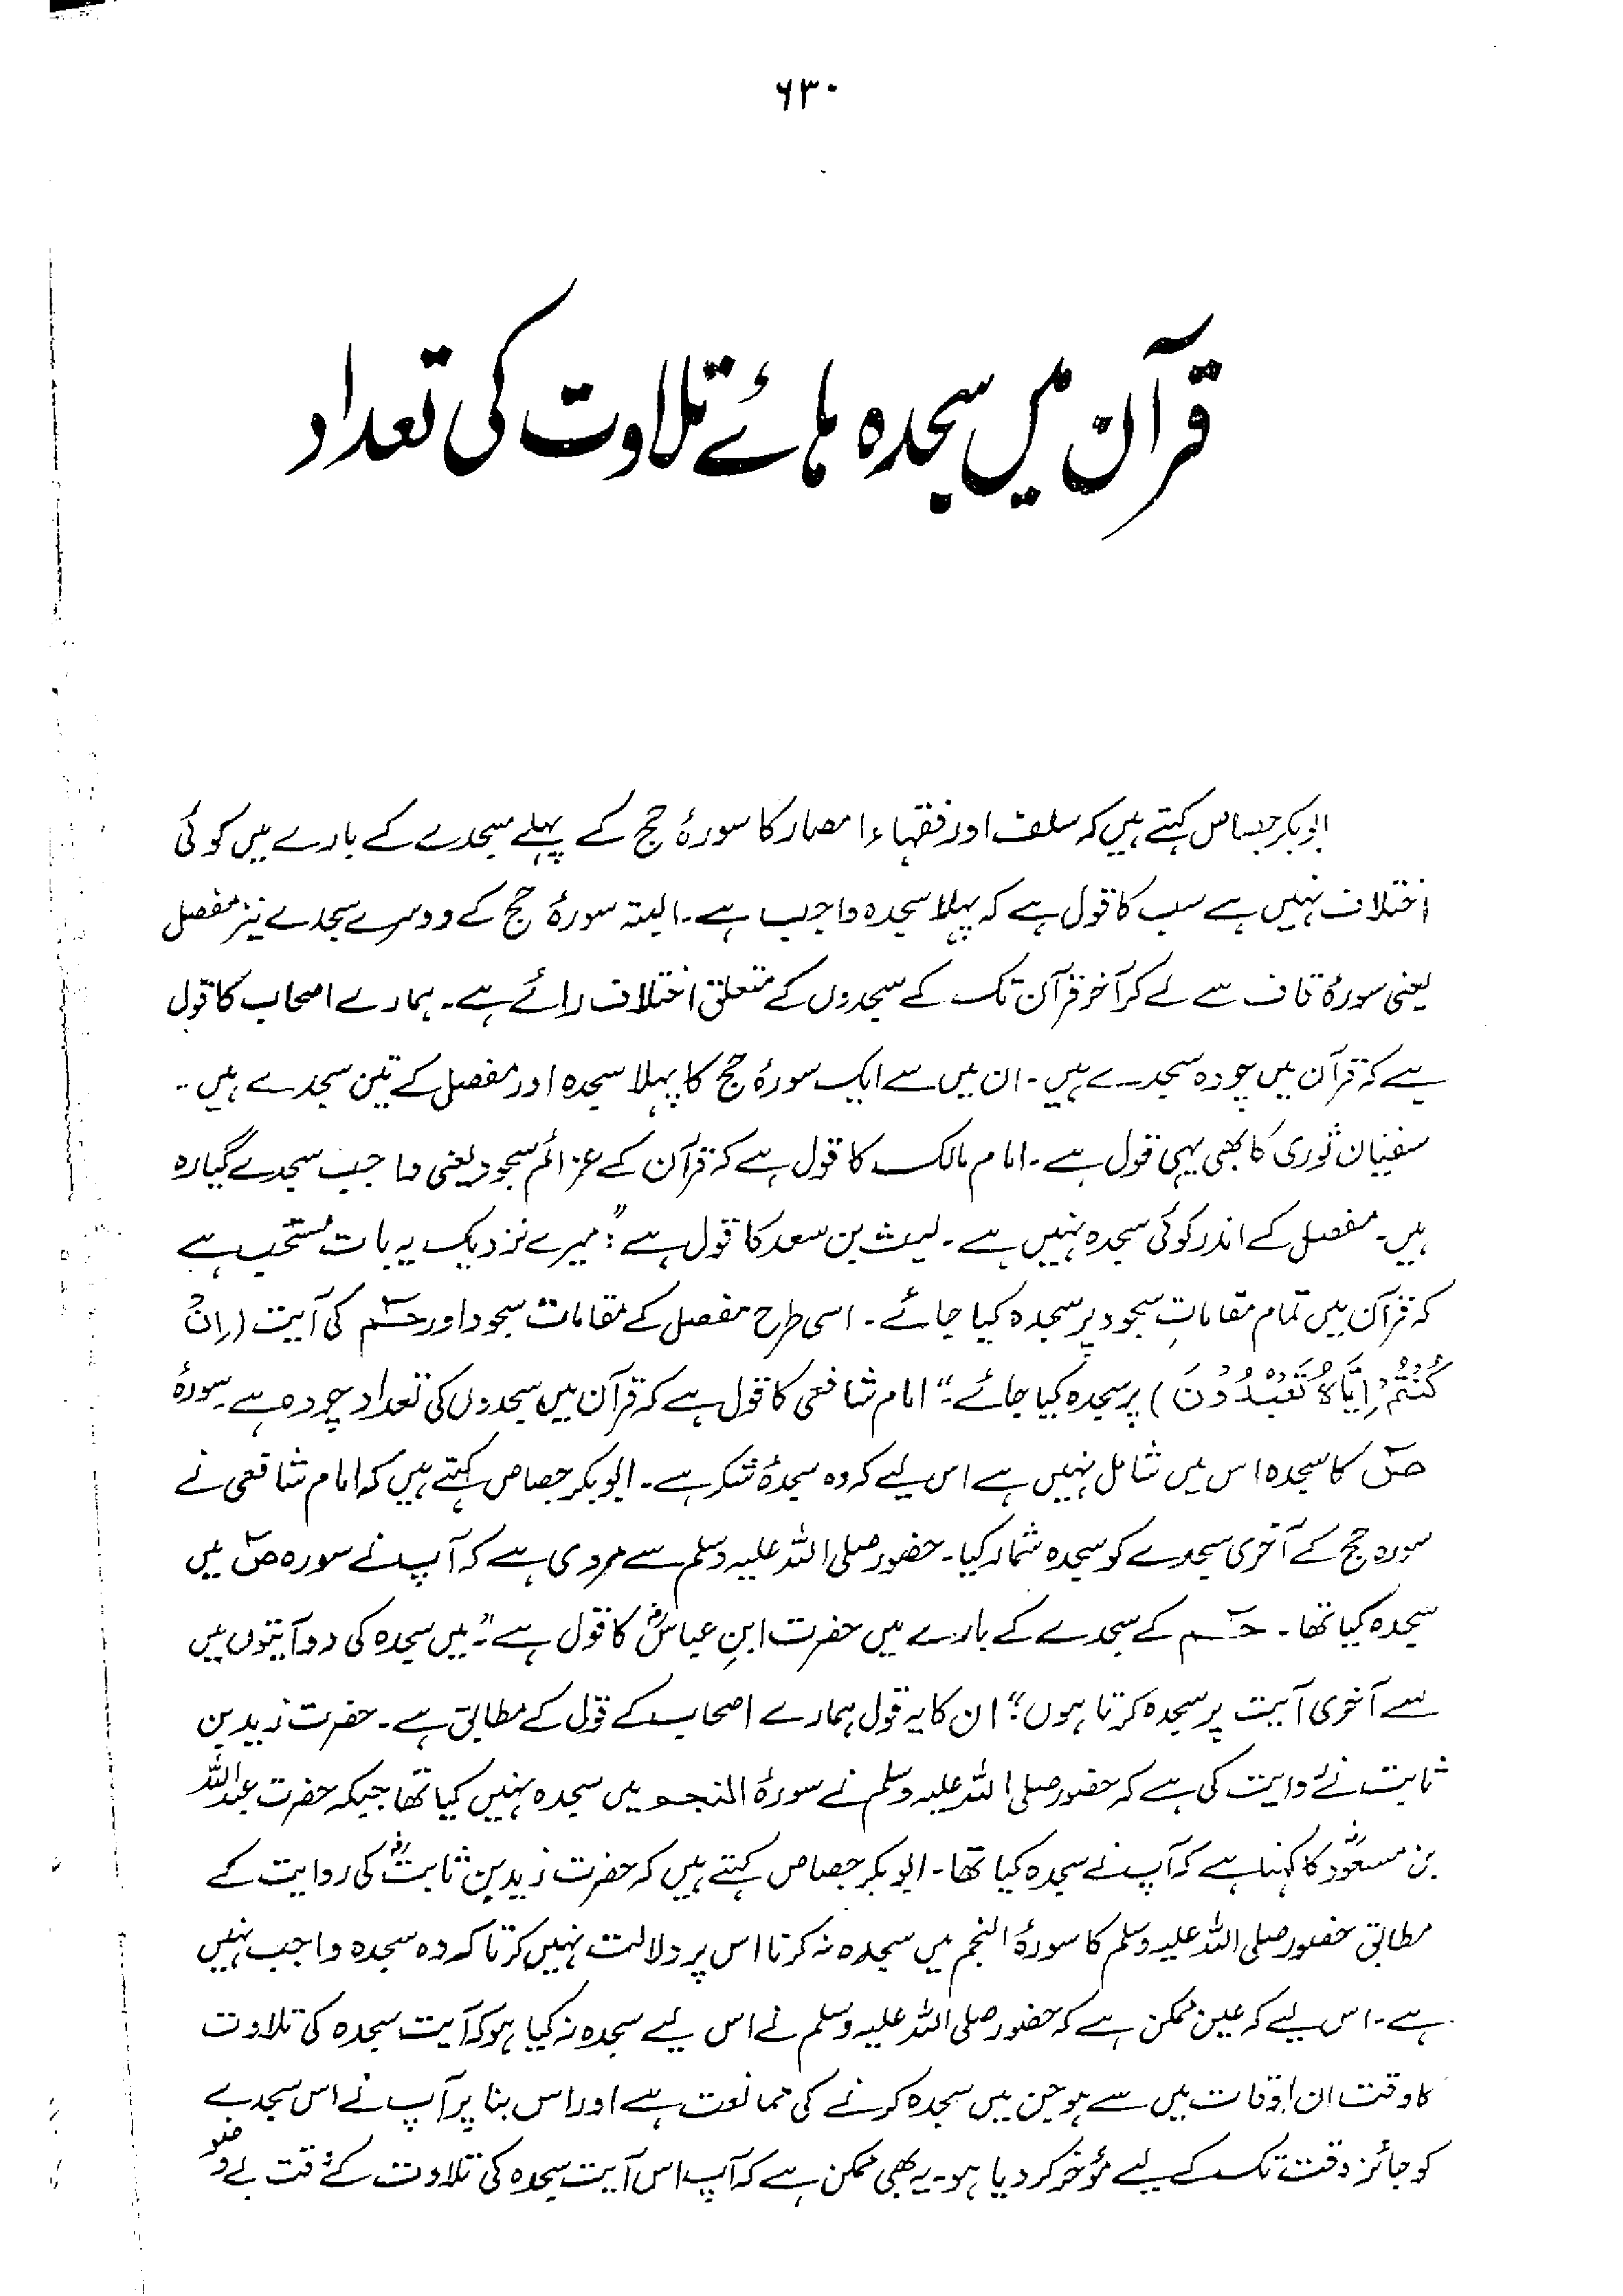 ۶۳۰
قرآن میں سجدہ ہائے تلاوت کی تعداد
ابوبکر جصاص کہتے ہیں کہ سلف اور فقہاء امصار کا سورۂ حج کے پہلے سجدے کے بارے میں کوئی
اختلاف نہیں ہے سب کا قول ہے کہ پہلا سجدہ واجب ہے۔ البتہ سورۂ حج کے دوسرے سجدے نیز مفصل
یعنی سورۂ قاف سے لے کر آخر قرآن تک کے سجدوں کے متعلق اختلاف رائے ہے۔ ہمارے اصحاب کا قول
ہے کہ قرآن میں چودہ سجدے ہیں۔ ان میں سے ایک سورۂ حج کا پہلا سجدہ اور مفصل کے تین سجدے ہیں۔
سفیان ثوری کا بھی یہی قول ہے۔ امام مالک کا قول ہے کہ قرآن کے عزائم سجود یعنی واجب سجدے گیارہ
ہیں۔ مفصل کے اندر کوئی سجدہ نہیں ہے۔ لیث بن سعد کا قول ہے: "میرے نزدیک یہ بات مستحب ہے
کہ قرآن میں تمام مقاماتِ سجود پر سجدہ کیا جائے۔ اسی طرح مفصل کے مقامات سجود اور حٰـمٓ کی آیت (اِنْ
كُنْتُمْ اِيَّاهُ تَعْبُدُوْنَ) پر سجدہ کیا جائے۔" امام شافعی کا قول ہے کہ قرآن میں سجدوں کی تعداد چودہ ہے۔ سورۂ
صٓ کا سجدہ اس میں شامل نہیں ہے اس لیے کہ وہ سجدۂ شکر ہے۔ ابوبکر جصاص کہتے ہیں کہ امام شافعی نے
سورہ حج کے آخری سجدے کو سجدہ شمار کیا۔ حضور صلی اللہ علیہ وسلم سے مروی ہے کہ آپ نے سورہ صٓ میں
سجدہ کیا تھا۔ حٰـمٓ کے سجدے کے بارے میں حضرت ابنِ عباسؓ کا قول ہے۔ "میں سجدہ کی دو آیتوں میں
سے آخری آیت پر سجدہ کرتا ہوں" ان کا یہ قول ہمارے اصحاب کے قول کے مطابق ہے۔ حضرت زید بن
ثابت نے روایت کی ہے کہ حضور صلی اللہ علیہ وسلم نے سورۂ النجم میں سجدہ نہیں کیا تھا جبکہ حضرت عبداللہ
بن مسعودؓ کا کہنا ہے کہ آپ نے سجدہ کیا تھا۔ ابوبکر جصاص کہتے ہیں کہ حضرت زید بن ثابتؓ کی روایت کے
مطابق حضور صلی اللہ علیہ وسلم کا سورۂ النجم میں سجدہ نہ کرنا اس پر دلالت نہیں کرتا کہ وہ سجدہ واجب نہیں
ہے۔ اس لیے کہ عین ممکن ہے کہ حضور صلی اللہ علیہ وسلم نے اس لیے سجدہ نہ کیا ہو کہ آیت سجدہ کی تلاوت
کا وقت ان اوقات میں سے ہو جن میں سجدہ کرنے کی ممانعت ہے اور اس بنا پر آپ نے اس سجدے
کو جائز وقت تک کے لیے مؤخر کر دیا ہو۔ یہ بھی ممکن ہے کہ آپ اس آیت سجدہ کی تلاوت کے وقت بے وضو